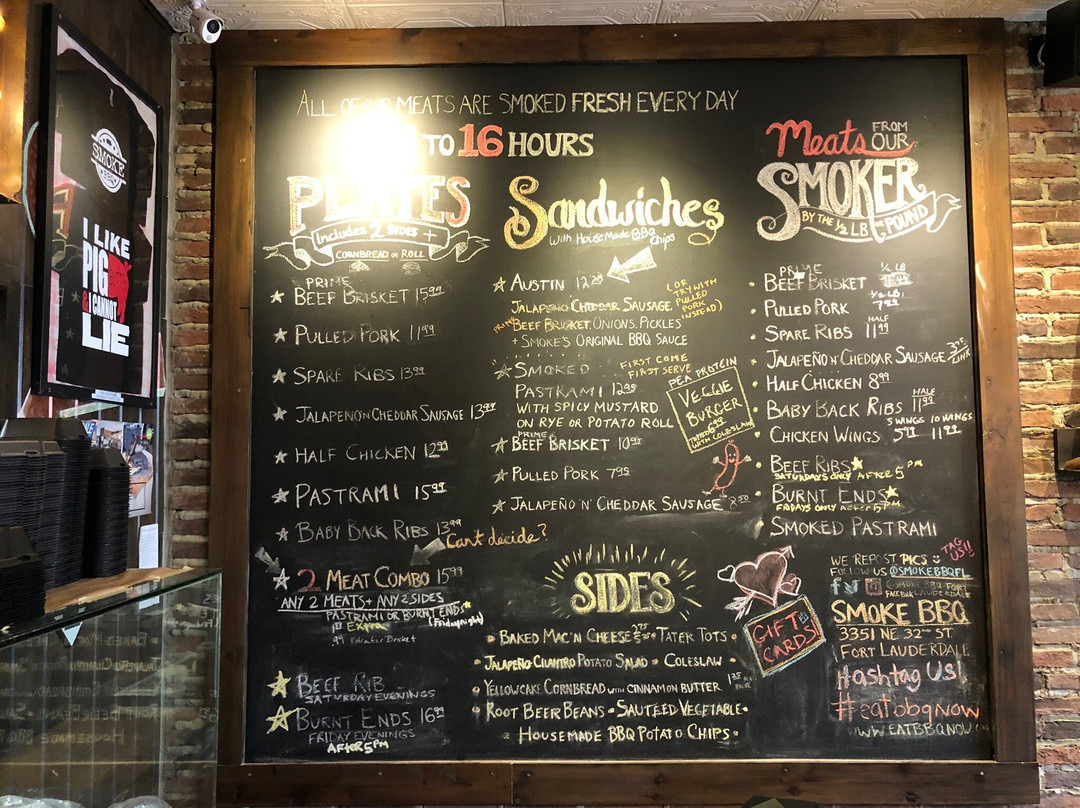 SMOKE
BBQ
I LIKE
PIG
& I CANNOT
LIE
ALL OF OUR MEATS ARE SMOKED FRESH EVERY DAY
TO 16 HOURS
PLATES
Includes 2 SIDES +
CORNBREAD OR ROLL
PRIME
BEEF BRISKET 15.99
PULLED PORK 11.99
SPARE RIBS 13.99
JALAPEÑO'N'CHEDDAR SAUSAGE 13.99
HALF CHICKEN 12.99
PASTRAMI 15.99
BABY BACK RIBS 13.99
Can't decide?
2 MEAT COMBO 15.99
ANY 2 MEATS + ANY 2 SIDES
PASTRAMI OR BURNT ENDS
(Friday night)
BEEF RIB
SATURDAY EVENINGS
BURNT ENDS 16.99
FRIDAY EVENINGS
AFTER 5PM
Sandwiches
with HouseMade BBQ
Chips
AUSTIN
JALAPEÑO CHEDDAR SAUSAGE,
(OR
TRY WITH
PULLED
PORK
INSTEAD)
PRIME BEEF BRISKET, ONIONS, PICKLES
+ SMOKE'S ORIGINAL BBQ SAUCE
SMOKED
FIRST COME
FIRST SERVE
PASTRAMI 12.95
WITH SPICY MUSTARD
ON RYE OR POTATO ROLL
PEA PROTEIN
VEGGIE
BURGER
TOPPED
WITH COLESLAW
PRIME
BEEF BRISKET 10.95
PULLED PORK 7.95
JALAPEÑO 'N' CHEDDAR SAUSAGE 8.50
SIDES
BAKED MAC 'N CHEESE • TATER TOTS
JALAPEÑO-CILANTRO POTATO SALAD • COLESLAW
YELLOWCAKE CORNBREAD WITH CINNAMON BUTTER
ROOT BEER BEANS • SAUTEED VEGETABLE
HOUSEMADE BBQ POTATO CHIPS
Meats FROM
OUR
SMOKER
BY THE 1/2 LB POUND
PRIME
1/2 LB
BEEF BRISKET
1/2 LB
PULLED PORK 7.99
HALF
SPARE RIBS 11.99
JALAPEÑO N' CHEDDAR SAUSAGE
LINK
HALF CHICKEN 8.99
HALF
BABY BACK RIBS 11.99
5 WINGS 10 WINGS
CHICKEN WINGS 5.99 11.99
BEEF RIBS
SATURDAYS ONLY AFTER 5PM
BURNT ENDS
FRIDAYS ONLY AFTER 5PM
SMOKED PASTRAMI
GIFT
CARDS!
WE REPOST PICS
TAG
US!!
FOLLOW US @SMOKEBBQFL
@SMOKE BBQ-FORT
FACEBOOK LAUDERDALE
SMOKE BBQ
3351 NE 32ND ST
FORT LAUDERDALE
Hashtag Us!
#eatbbqnow
WWW.EATBBQNOW